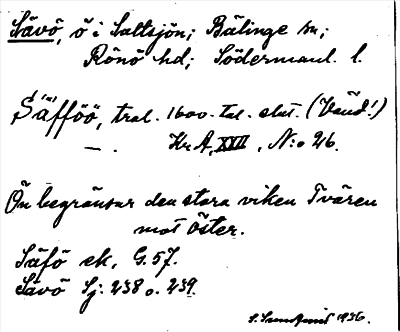 Sävö, ö i Saltsjön; Bälinge sn;
Rönö hd; Södermanl. l.
Säfföö, tral. 1600-tal. slut. (Vänd!)
—. Kr A, XVII, N:o 26.
Ön begränsar den stora viken Tvären
mot öster.
Säfö ek. G. 57.
Sävö Sj: 238 o. 239.
1936.